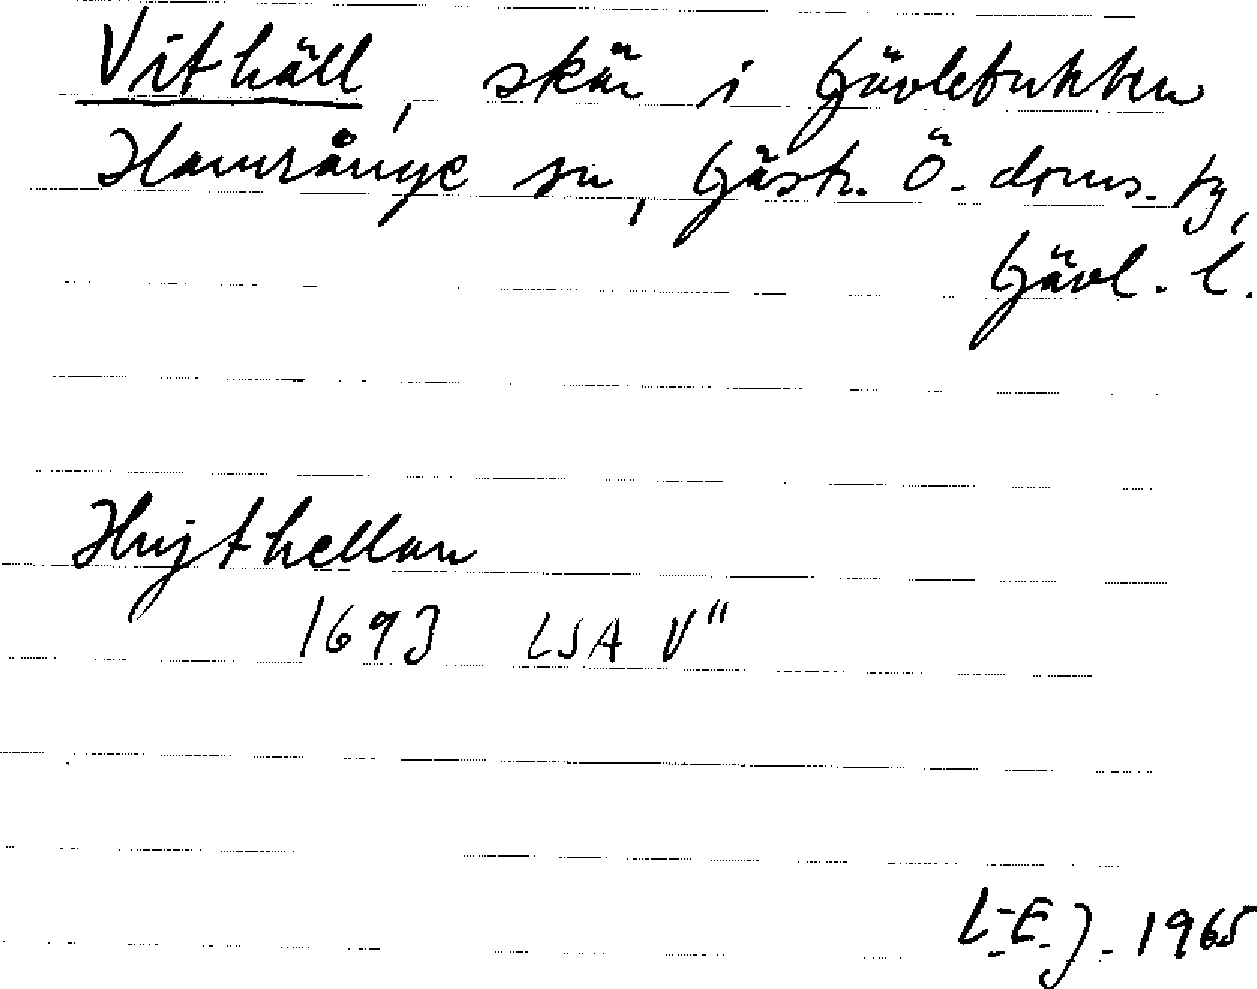 Vithäll, skär i Gävlebukten
Hamrånge sn, Gästr. Ö. doms. tg,
Gävl. l.
Hvijthellan
1693 LSA V"
L-E J. 1965